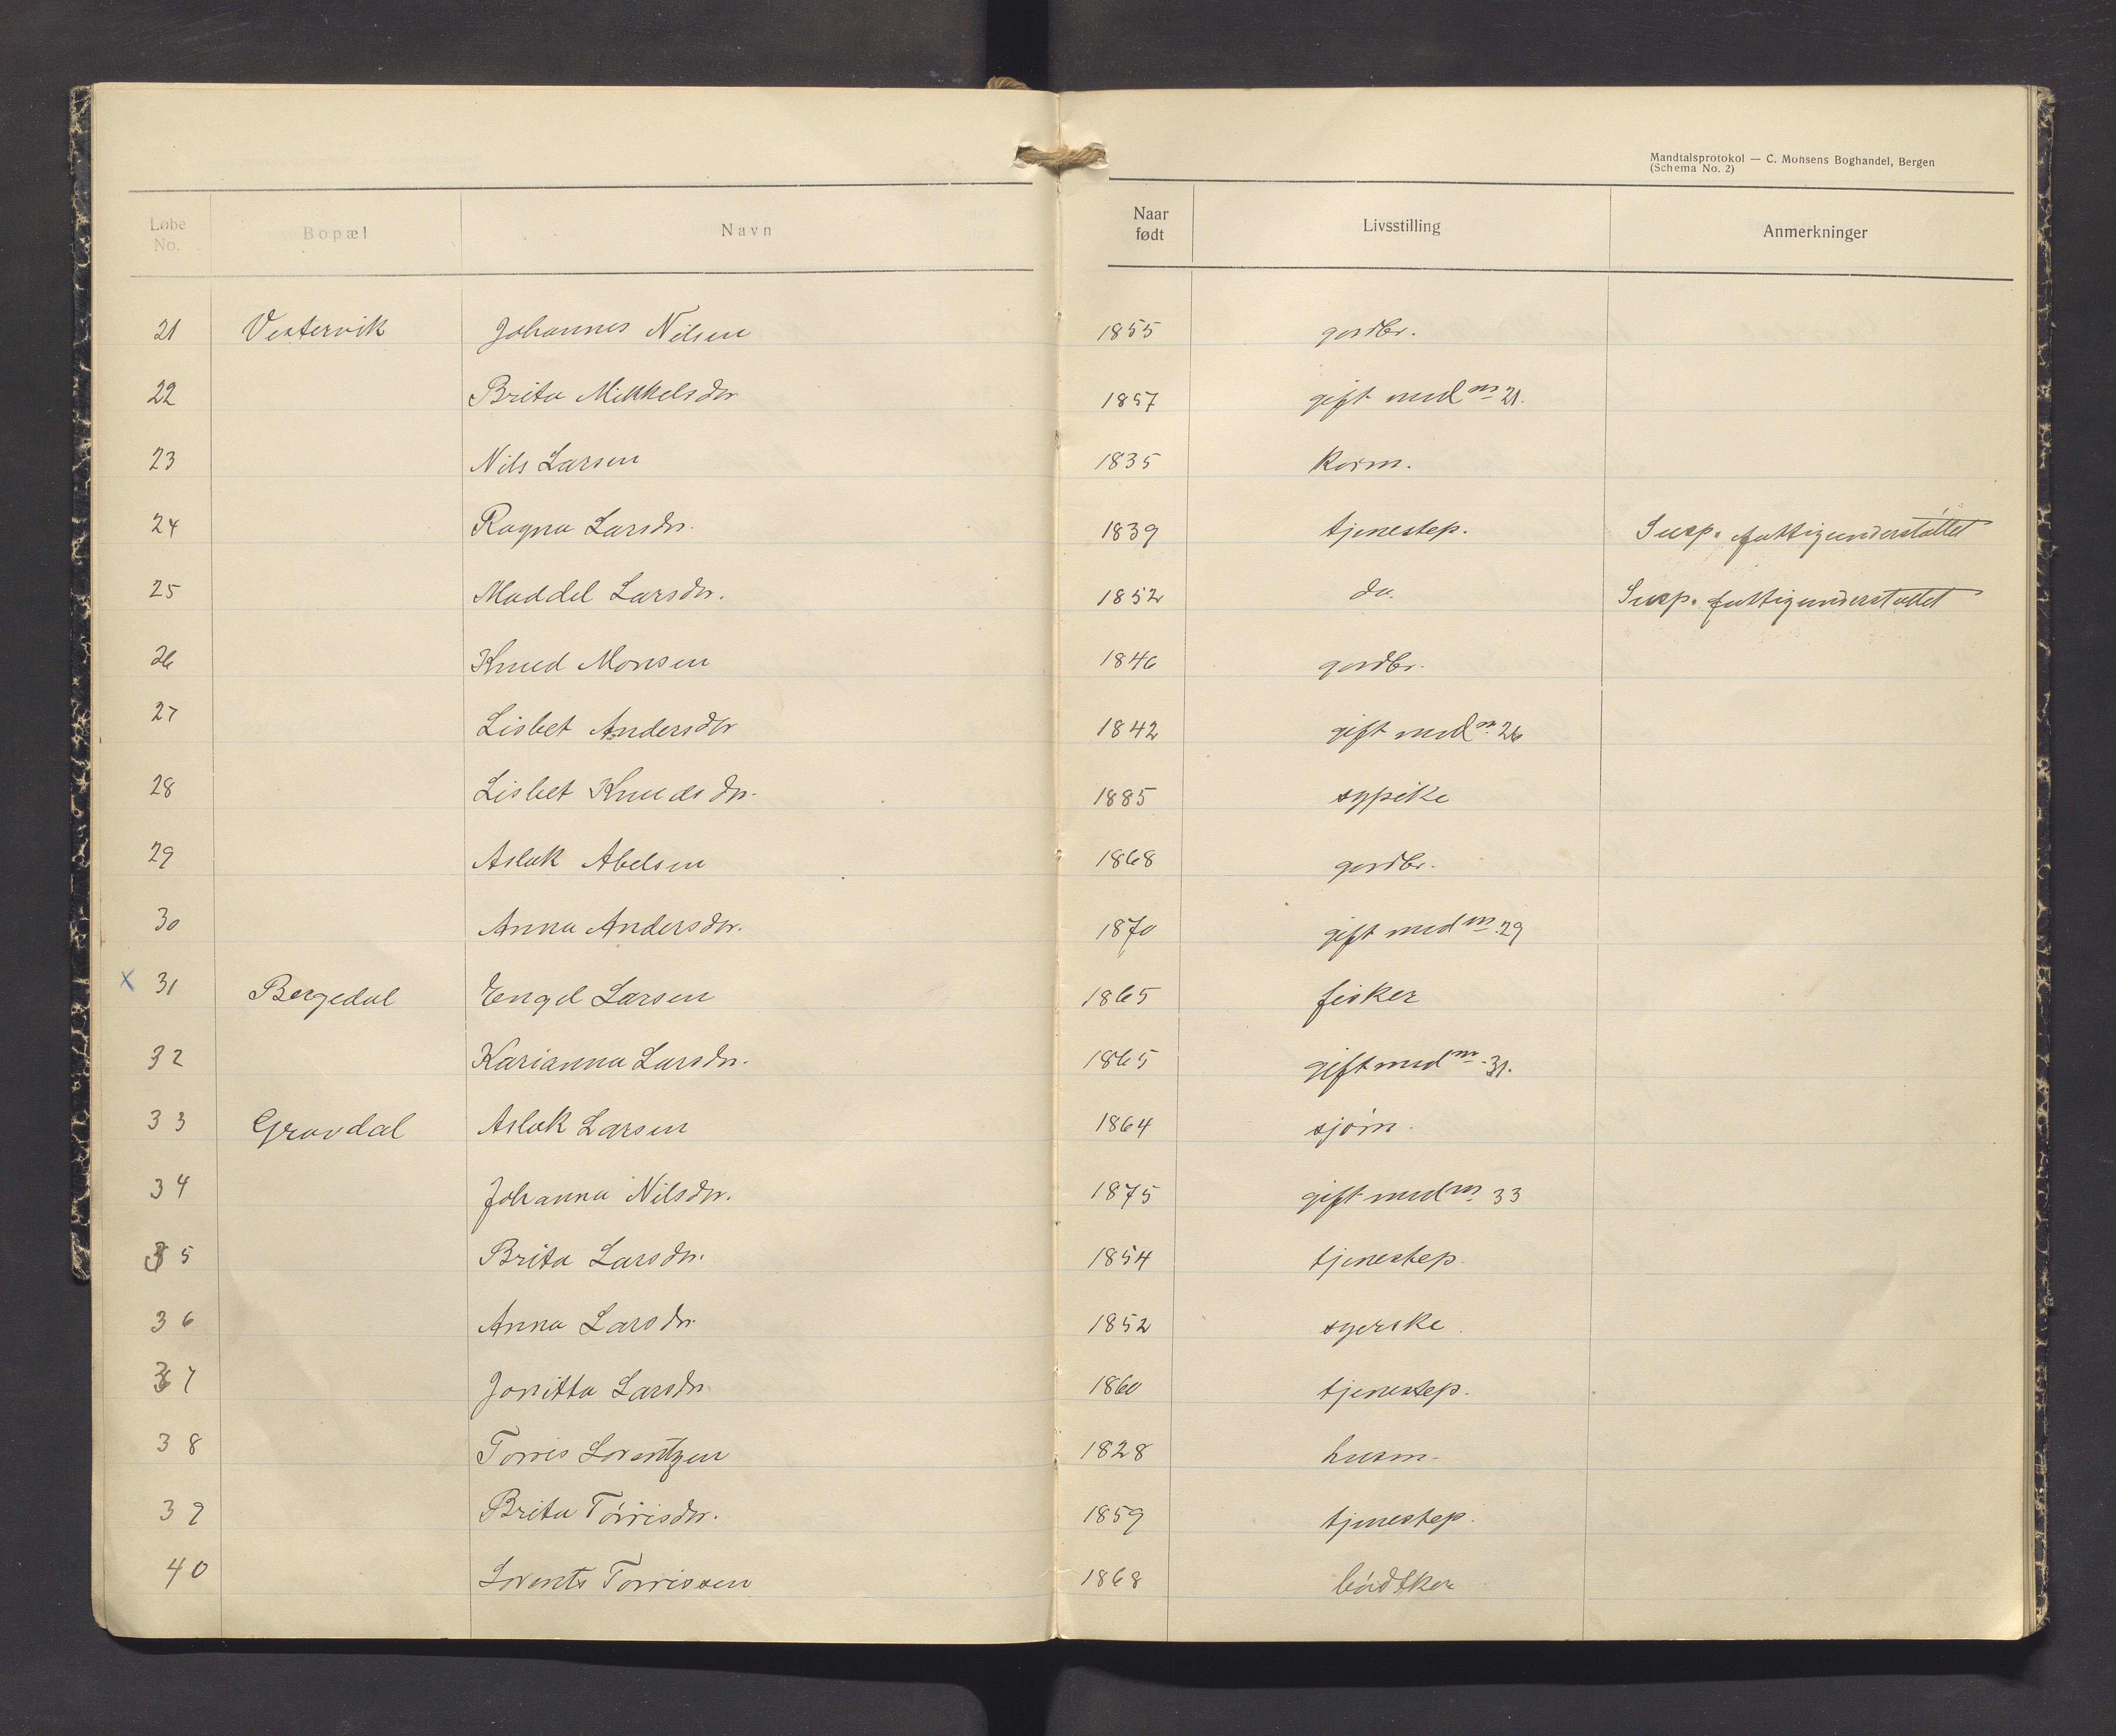 Mandtalsprotokol — C. Monsens Boghandel, Bergen
(Schema No. 2)
Løbe No. Bopæl Navn Naar født Livsstilling Anmerkninger
21 Vestervik Johannes Nilsen 1855 gordbr.
22 Brita Mikkelsdtr 1857 gift med no 21.
23 Nils Larsen 1835 Korm.
24 Ragna Larsdtr. 1839 tjenestep. Susp. fattigunderstøttet
25 Maddel Larsdtr. 1852 do. Susp. fattigunderstøttet
26 Knud Monsen 1846 gordbr.
27 Lisbet Andersdtr 1842 gift med no 26
28 Lisbet Knudsdtr. 1885 sypike
29 Aslak Abelsen 1868 gordbr.
30 Anna Andersdtr. 1870 gift med no 29
x 31 Bergedal Engel Larsen 1865 fisker
32 Karianna Larsdtr. 1865 gift med no 31.
33 Gravdal Aslak Larsen 1864 sjøm.
34 Johanna Nilsdtr. 1875 gift med no 33
35 Brita Larsdtr. 1854 tjenestep.
36 Anna Larsdtr. 1852 syerske
37 Jonitta Larsdtr. 1860 tjenestep.
38 Torris Lorentzen 1828 husm.
39 Brita Tórrisdtr. 1859 tjenestep.
40 Lorents Torrissen 1868 bødtker